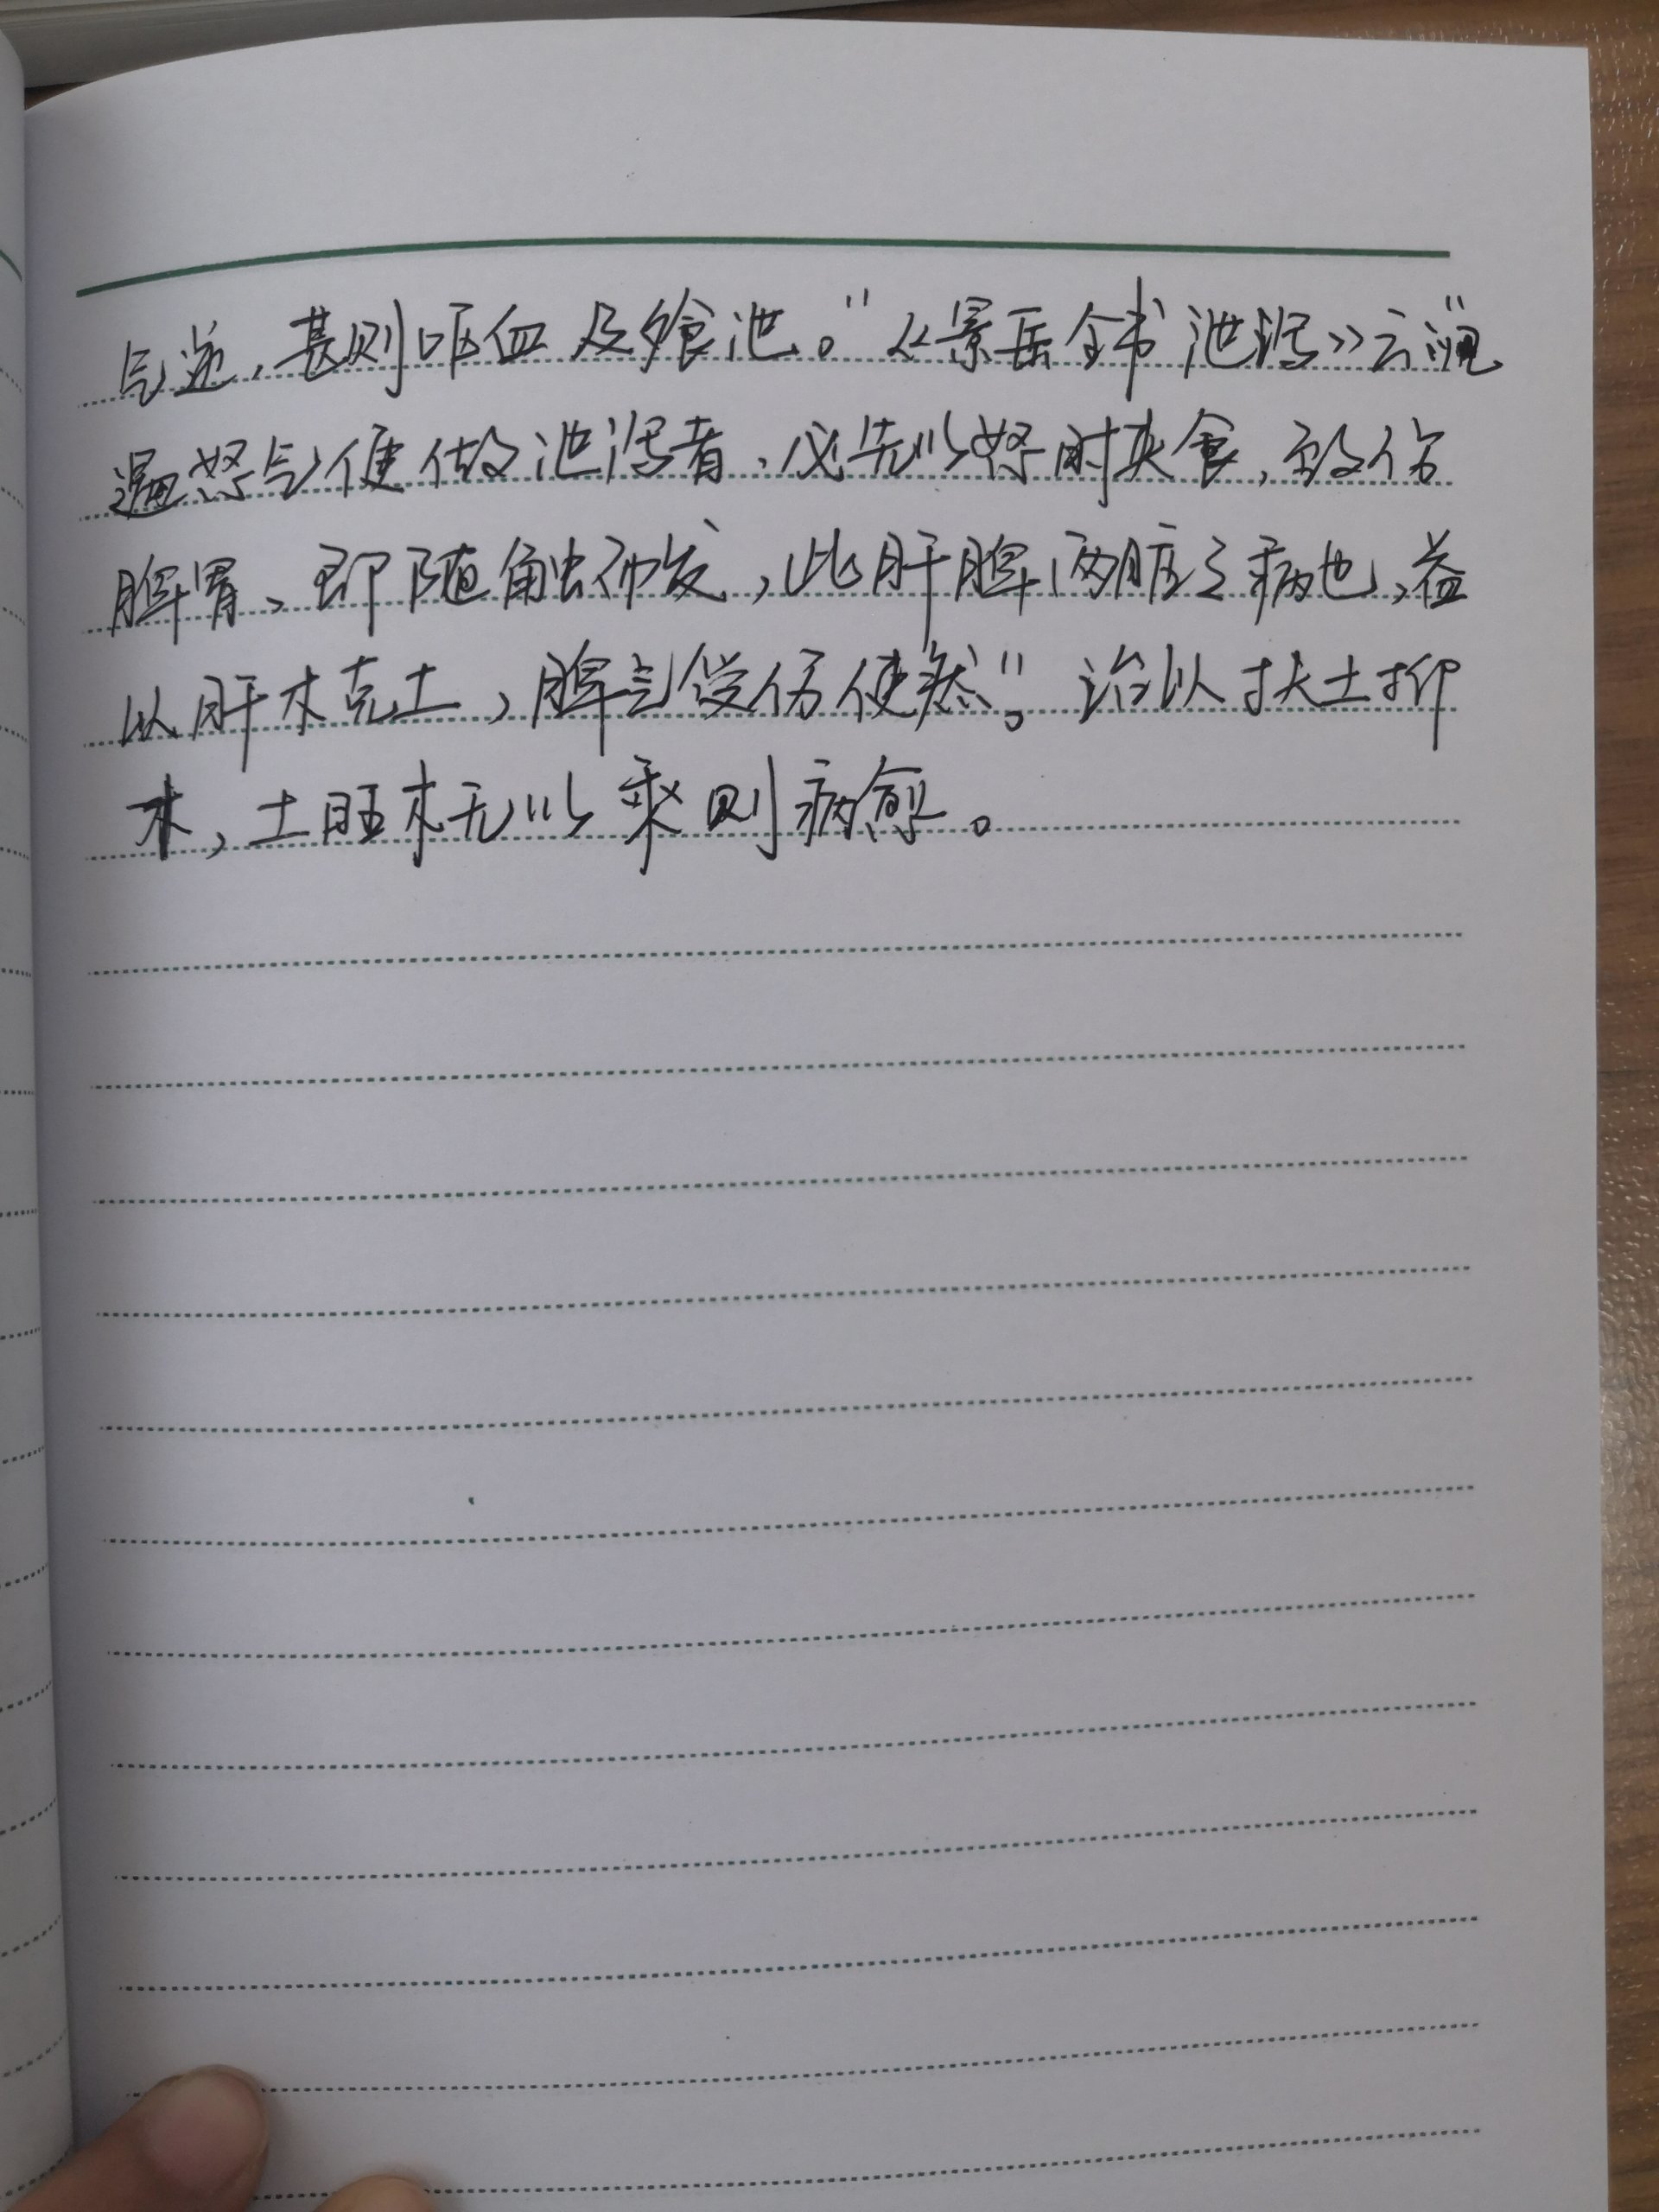 气逆，甚则呕血及飧泄。"《景岳全书 泄泻》云"
遇怒气便做泄泻者，必先以怒时夹食，致伤
脾胃、即随触而发，此肝脾两脏之病也，益
以肝木克土，脾气受伤使然"。治以扶土抑
木，土旺木无以乘则病愈。